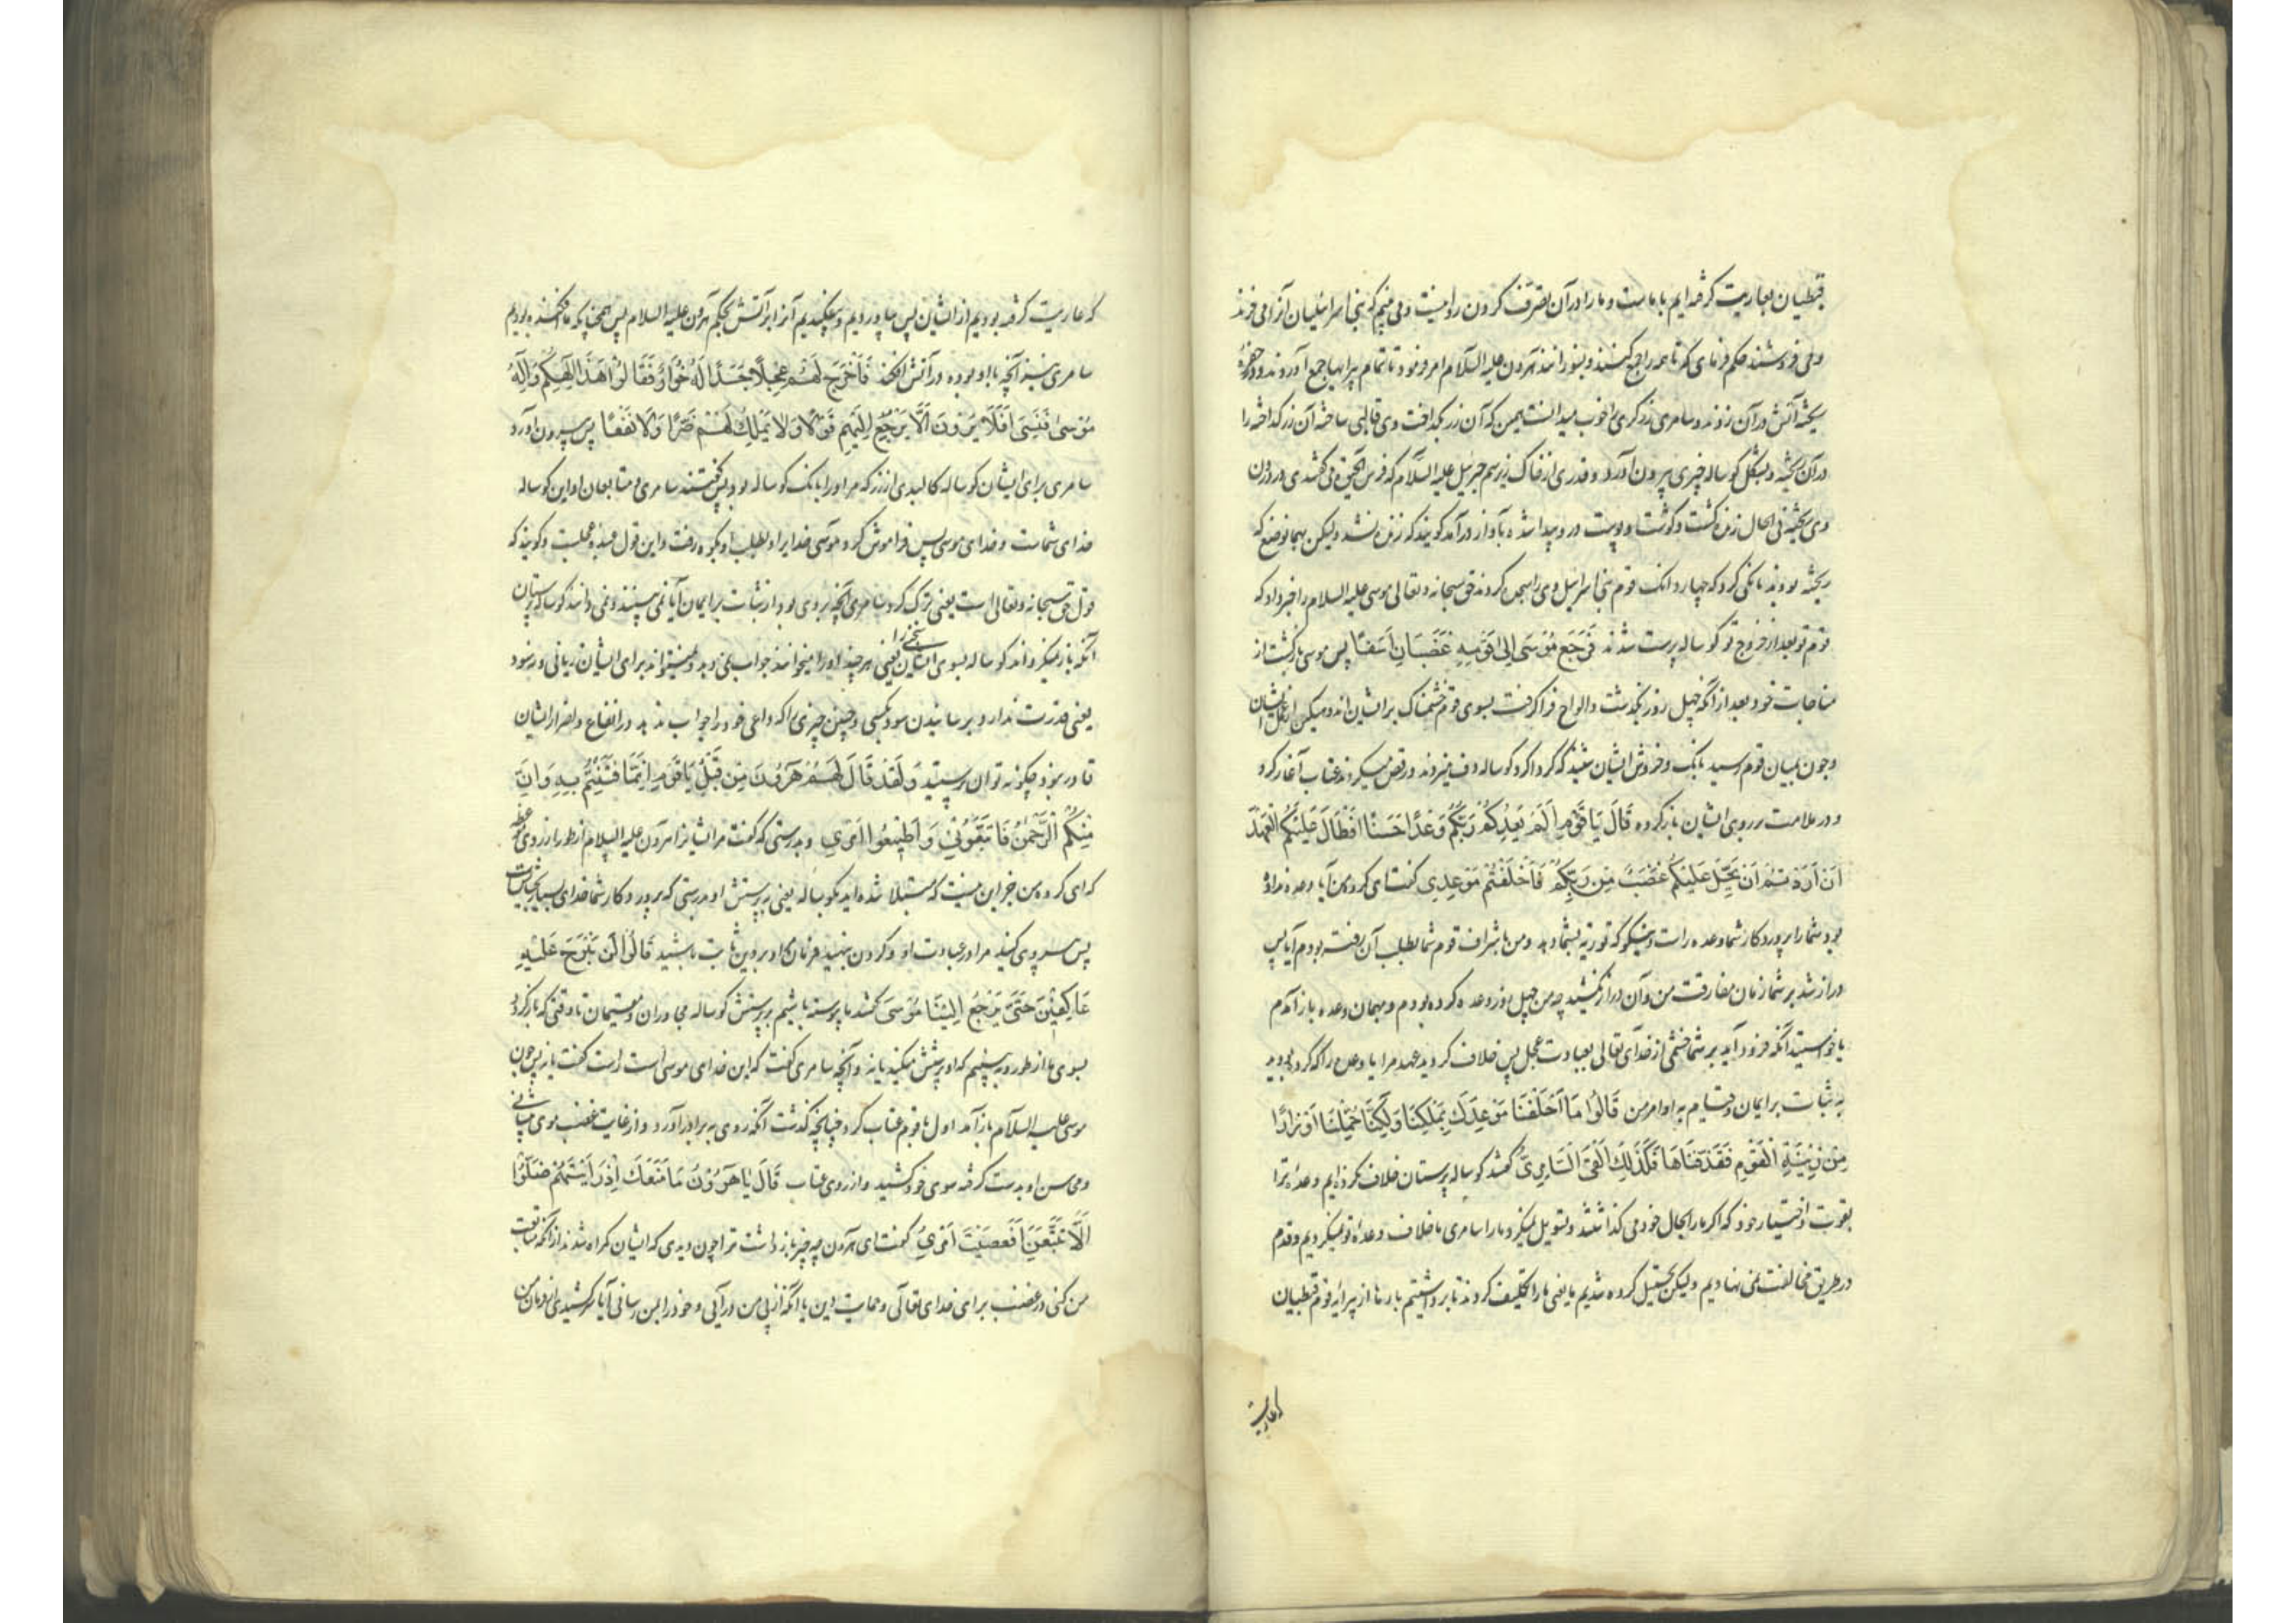 قبطیان بعاریت گرفته ایم با ماست و ما را در آن تصرف کردن روا نیست و می بینم که بنی اسرائیلیان آنرا می خرند
و می فروشند حکم فرمای که تا همه را جمع کنند و بسوزانند هرون علیه السلام امر فرمود تا تمام پیرایها جمع آوردند و در حفره
ریخته آتش در آن زدند و سامری زرگری را خوب میدانست همین که آن زر بگداخت وی قالبی ساخته آن زر گداخته را
در آن ریخته و بشکل گوساله چیزی بیرون آورد و قدری از خاک زیر سم جبرئیل علیه السلام که فرس الحیوة می گفتندی در درون
وی ریخته فی الحال زنده گشت و گوشت و پوست در و پیدا شد و بآواز درآمد گویند که زنده نشد ولیکن بهمانوضع که
ریخته بودند بانکی کرد که چهار دانک قوم بنی اسرائیل وی را سجده کردند حق سبحانه و تعالی موسی علیه السلام را خبر داد که
قوم تو بعد از خروج تو گوساله پرست شدند فَرَجَعَ مُوسَى إِلَى قَوْمِهِ غَضْبَانَ أَسِفًا پس موسی بازگشت از
مناجات خود بعد از آنکه چهل روز بگذشت و الواح فرا گرفت بسوی قوم خشمناک بر ایشان اندوهگین از عمل ایشان
و چون بمیان قوم رسید بانک و خروش ایشان شنید که گرداگرد گوساله دف میزدند و رقص میکردند عتاب آغاز کرد
و در ملامت بر روی ایشان باز کرده قَالَ يَا قَوْمِ أَلَمْ يَعِدْكُمْ رَبُّكُمْ وَعْدًا حَسَنًا أَفَطَالَ عَلَيْكُمُ الْعَهْدُ
أَمْ أَرَدْتُمْ أَنْ يَحِلَّ عَلَيْكُمْ غَضَبٌ مِنْ رَبِّكُمْ فَأَخْلَفْتُمْ مَوْعِدِي گفت ای گروه من آیا وعده نداده
بود شما را پروردگار شما وعده راست و نیکو که توریة بشما دهد و من با اشراف قوم شما بطلب آن رفته بودم آیا پس
دراز شد بر شما زمان مفارقت من و آن دراز نکشید چه من چهل روز وعده کرده بودم و بهمان وعده باز آمدم
یا خواستید آنکه فرود آید بر شما خشمی از خدای تعالی بعبادت عجل پس خلاف کردید عهد مرا یا وعده را که کرده بودید
به ثبات بر ایمان و قیام به اوامر من قَالُوا مَا أَخْلَفْنَا مَوْعِدَكَ بِمَلْكِنَا وَلَكِنَّا حُمِّلْنَا أَوْزَارًا
مِنْ زِينَةِ الْقَوْمِ فَقَذَفْنَاهَا فَكَذَلِكَ أَلْقَى السَّامِرِيُّ گفتند گوساله پرستان خلاف نکرده ایم وعدۀ ترا
بقوت و اختیار خود که اگر ما را بحال خود می گذاشتند و تسویل نمیکرد ما را سامری ما خلاف وعدۀ تو نمیکردیم و قدم
در طریق مخالفت نمی نهادیم ولیکن تحمیل کرده شدیم یعنی ما را تکلیف کردند تا برداشتیم بارها از پیرایۀ قوم قبطیان
که عاریت
که عاریت گرفته بودیم از ایشان پس بیاوردیم و بیفکندیم آنرا بر آتش بحکم هرون علیه السلام پس همچنانکه ما افکنده بودیم
سامری نیز آنچه با او بوده در آتش افکند فَأَخْرَجَ لَهُمْ عِجْلًا جَسَدًا لَهُ خُوَارٌ فَقَالُوا هَذَا إِلَهُكُمْ وَإِلَهُ
مُوسَى فَنَسِيَ أَفَلَا يَرَوْنَ أَلَّا يَرْجِعُ إِلَيْهِمْ قَوْلًا وَلَا يَمْلِكُ لَهُمْ ضَرًّا وَلَا نَفْعًا پس بیرون آورد
سامری برای ایشان گوساله کالبدی از زر که مر او را بانک گوساله بود پس گفتند سامری و متابعان او این گوساله
خدای شماست و خدای موسی پس فراموش کرد موسی خدایرا و بطلب او بکوه رفت و این قول عبدۀ عجلست و گویند که
قول حق سبحانه و تعالی است یعنی ترک کرد سامری آنچه بر وی بود از ثبات بر ایمان آیا نمی بینند و نمی دانند گوساله پرستان
آنکه باز نمیگرداند گوساله بسوی ایشان سخن را یعنی هر چند او را میخوانند جواب نمی دهد و نمیتواند برای ایشان زیانی و نه سود
یعنی قدرت ندارد بر رسانیدن سود بکسی و چنین چیزی که داعی خود را جواب ندهد و در انتفاع و اضرار ایشان
قادر نبود چگونه توان پرستید وَلَقَدْ قَالَ لَهُمْ هَرُونُ مِنْ قَبْلُ يَا قَوْمِ إِنَّمَا فُتِنْتُمْ بِهِ وَإِنَّ
رَبَّكُمُ الرَّحْمَنُ فَاتَّبِعُونِي وَأَطِيعُوا أَمْرِي و بدرستی که گفت مر ایشانرا هرون علیه السلام از روی موعظه
که ای گروه من جز این نیست که مبتلا شده اید بگوساله یعنی به پرستش او و بدرستی که پروردگار شما خدای بسیار بخشایش است
پس پیروی کنید مرا در عبادت او و گردن بنهید فرمان او بر دین ثابت باشید قَالُوا لَنْ نَبْرَحَ عَلَيْهِ
عَاكِفِينَ حَتَّى يَرْجِعَ إِلَيْنَا مُوسَى گفتند ما پیوسته باشیم بر پرستش گوساله مجاوران و مقیمان تا وقتی که باز گردد
بسوی ما از طور و به بینیم که او پرستش میکند یا نه و آنچه سامری گفت که این خدای موسی است راست گفت یا نه پس چون
موسی علیه السلام باز آمد اول با قوم عتاب کرد چنانچه گذشت آنکه روی به برادر آورد و از غایت غضب موی پیشانی
و محاسن او بدست گرفته سوی خود کشید و از روی عتاب قَالَ يَا هَرُونُ مَا مَنَعَكَ إِذْ رَأَيْتَهُمْ ضَلُّوا
أَلَّا تَتَّبِعَنِ أَفَعَصَيْتَ أَمْرِي گفت ای هرون چه چیز باز داشت ترا چون دیدی که ایشان گمراه شدند از آنکه متابعت
من کنی در غضب برای خدای تعالی و حمایت دین یا آنکه از پی من درآیی و خود را بمن رسانی آیا سرکشیدی از فرمان من